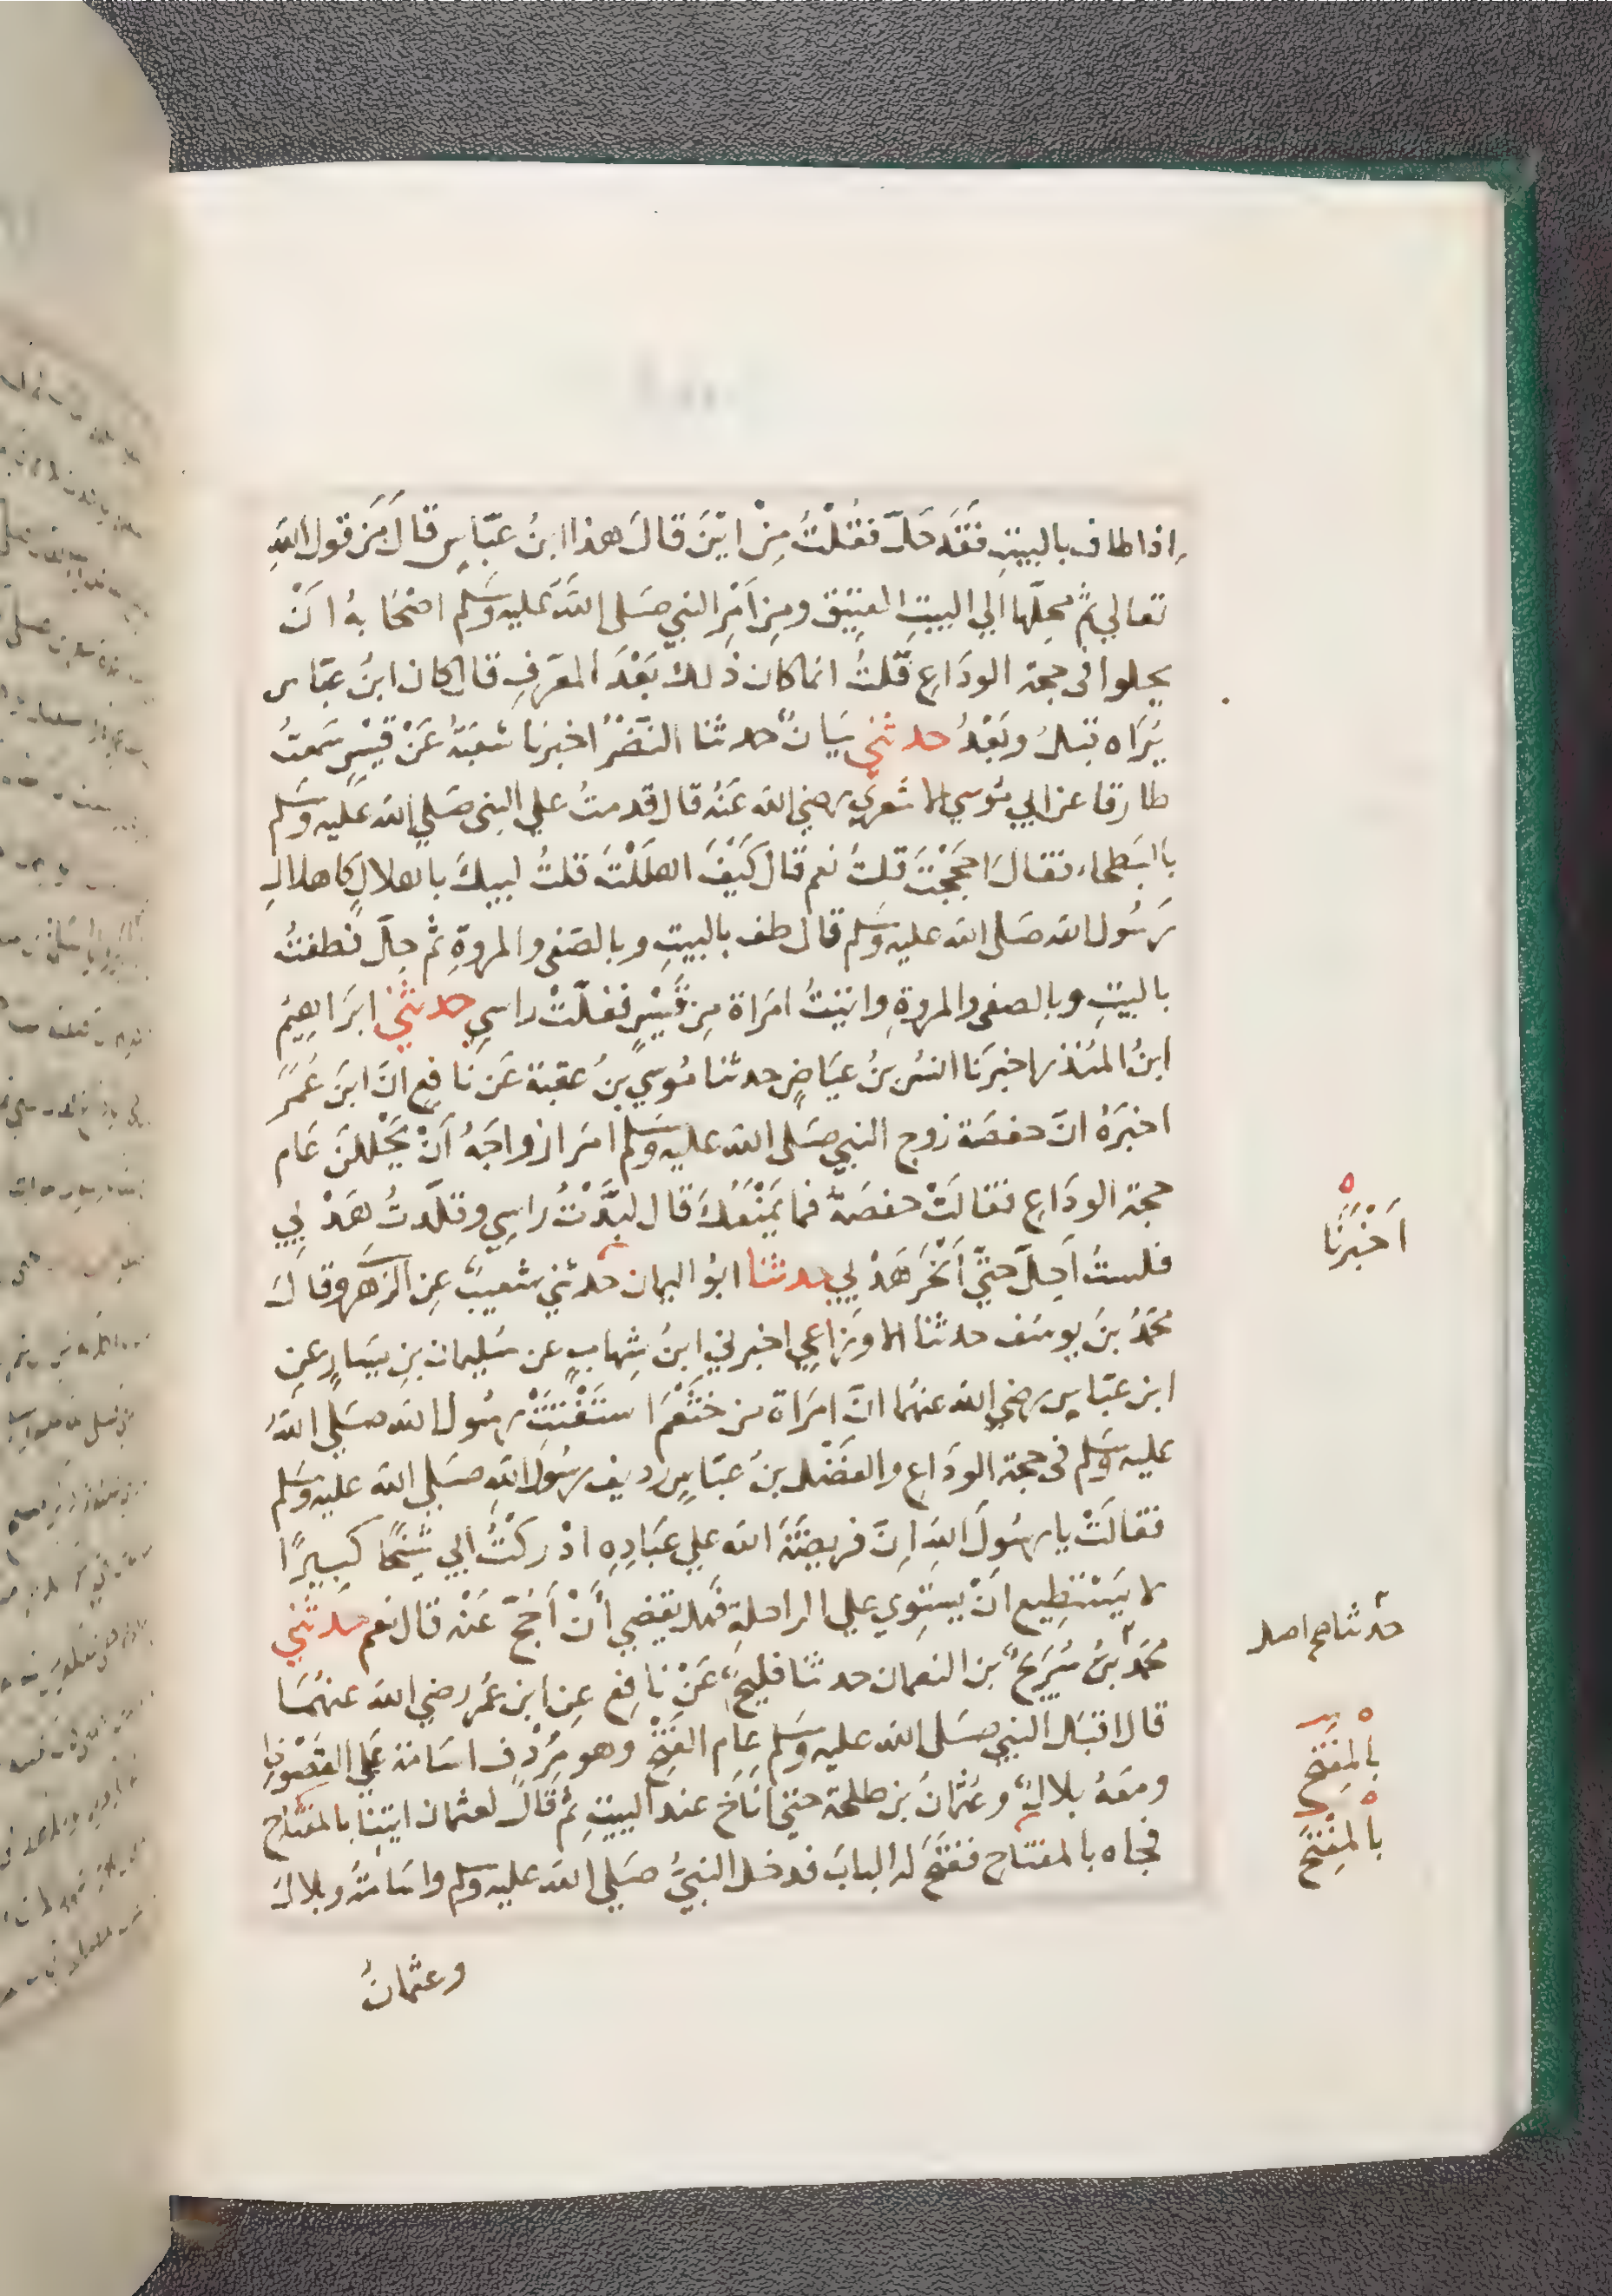 اذا طاف بالبيتِ فَقَد حَلَّ فقُلْتُ مِنْ ايْنَ قالَ هذا ابنُ عبّاسٍ قالَ مِن قول اللهِ
تعالي ثمَّ محِلّها الي البيتِ العتِيق ومِن اَمْرِ النبي صَلى اللهُ عَليه وسَلم اصْحَابهُ اَنْ
يحلوا فى حجة الودَاعِ قُلتُ انما كان ذٰلك بَعْدَ المعَرفِ قال كان ابنُ عبّاس
يُرَاه قبلُ وبَعْدُ حدثني بيَانٌ حدثنا النَّضْرُ اخبرنا شعبَةُ عَنْ قيْسٍ سَمعتُ
طارقا عن ابي مُوسي الاشعري رضي الله عَنْهُ قال قدمتُ علي النبى صَلي الله عَليه وسَلم
بالبَطحاء فقالَ احَجَجْتَ قلتُ نعم قال كَيْفَ اهلَلْتَ قلتُ لبيكَ باهلالٍ كاهلالِ
رَسُول الله صَلى الله عليه وسَلم قال طف بالبيتِ وبالصَفى والمروةِ ثم حِلَّ فطفتُ
بالبيتِ وبالصفى والمروةِ واتيْتُ امرَاة مِن قَيْسٍ ففلَتْ راسِي حدثني ابرَاهِيمُ
ابنُ المُنذر اخبرَنا انسُ بنُ عيَاضٍ حدثنا مُوسي بنُ عقبة عَن نافِعٍ انَّ ابنَ عُمَرَ
اخبَرَهُ انَّ حفصَة زوج النبي صَلى الله عليه وسَلم امَرَ ازواجَهُ اَنْ يَحْللنَ عَام
حجة الودَاعِ فقالَتْ حفصَةُ فما يَمْنَعُكَ قال لبَّدْتُ راسِي وقلَّدتُ هَدْيِي
فلستُ اَحِلُّ حتَّي اَنْحَرَ هَدْيِي حدثنا ابوُ اليمان حدثني شعيبٌ عِن الزهرِ وقالَ
محمّدُ بنُ يوسف حدثنا الاوزاعي اخبرني ابنُ شِهابٍ عن سُليمان بنِ يسَارٍ عنِ
ابن عبّاسٍ رضي الله عنهُما انَّ امرَاة من خَثْعَمَ استَفْتَتْ رسُول الله صَلي اللهُ
عليه وسَلم فى حجة الودَاعِ والفضْل بنُ عبّاسٍ رديف رسُول اللهِ صَلي الله عليه وسَلم
فقالَتْ يا رسُولَ اللهِ اِنَّ فريضَةَ الله علي عبَادِهِ ادْركَتْ ابي شيْخًا كبِيرًا
لا يَسْتَطِيع انْ يستوِي علي الراحلةِ فهل يقضي أنْ اَحُجَّ عَنْه قال نعم حدثني
محمدُ بنُ سُرَيجُ بن النعمان حدثنا فليحٌ عَنْ نافِعٍ عِن ابن عمر رضي الله عنهُمَا
قال اقبَل النبي صَلى الله عليه وسَلم عام الفَتْحِ وهو مُرْدِف اسَامَة عَلي القصْواءِ
ومعَهُ بلالٌ وعُثمانُ بن طلحة حتي اَنَاخَ عند البيتِ ثم قالَ لعثمان ايتِنا بالمفتاحِ
فجاه بالمفتاحِ ففتحَ له البابَ فدخل النبيُّ صَلي الله عليه وسَلم واسَامَةُ وبلالٌ
وعثمانُ
اَخْبَرَنا
حدثنا صح اصل
بالمِفتَحِ
بالمِفْتَحَ